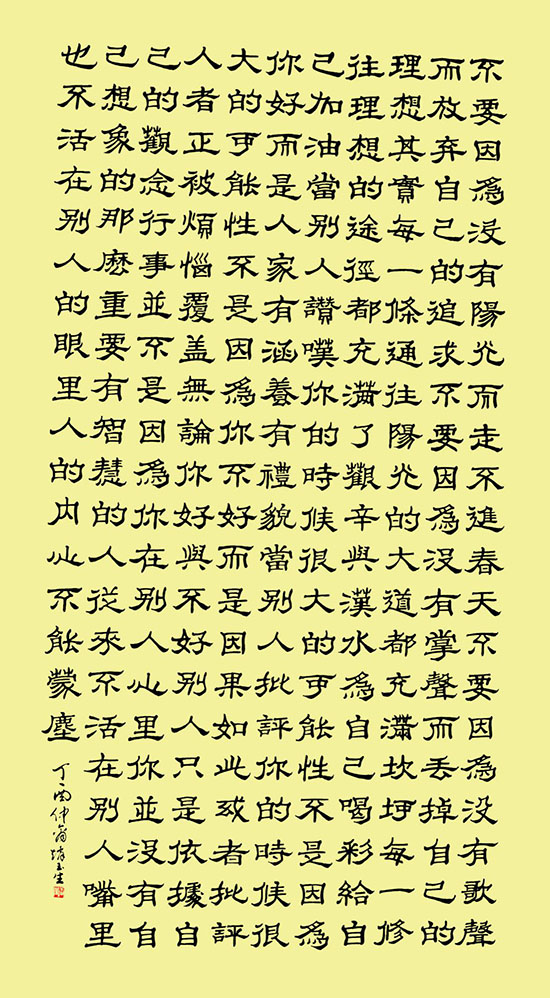 不要因為沒有陽光而走不進春天不要因為沒有歌聲
而放弃自己的追求不要因為沒有掌聲而丢掉自己的
理想其實每一條通往陽光的大道都充滿坎坷每一修
往理想的途徑都充滿了觀辛與漢水為自己喝彩給自
己加油當别人讚嘆你的時候很大的可能性不是因為
你好而是人家有涵養有禮貌當别人批評你的時候很
大的可能性不是因為你不好而是因果如此或者批評
人者正被煩惱覆盖無論你好與不好别人只是依據自
己的觀念行事並不是因為你在别人心里你並沒有自
己想象的那麽重要有智慧的人從來不活在别人嘴里
也不活在别人的眼里人的内心不能蒙塵
丁酉仲